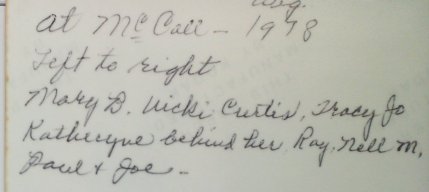 Aug.
at McCall - 1978
Left to right
Mary D. Vicki Curtis, Tracy Jo
Katheryne behind her, Ray, Nell M,
Paul + Joe -